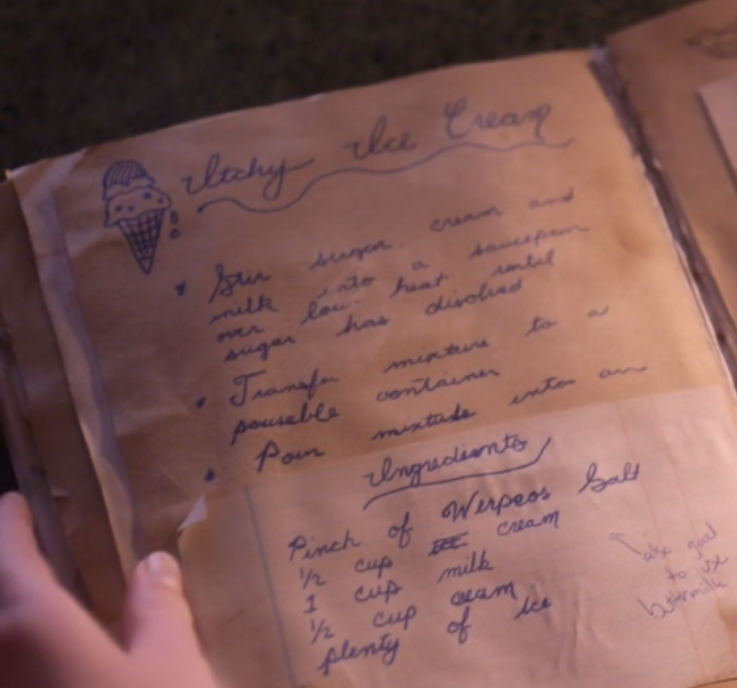 Itchy Ice Cream
Stir sugar, cream and
milk into a saucepan
over low heat until
sugar has disolved
Transfer mixture to a
pourable container
Pour mixture into an
Ingredients
Pinch of Werpoos Salt
1/2 cup cream
1 cup milk
1/2 cup cream
plenty of ice
also good
to use
buttermilk